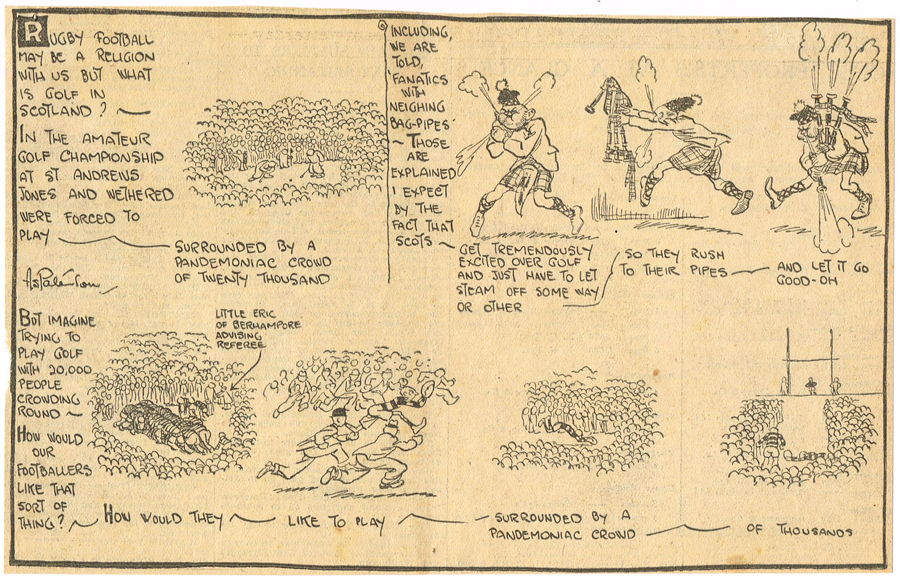 RUGBY FOOTBALL
MAY BE A RELIGION
WITH US BUT WHAT
IS GOLF IN
SCOTLAND? ~
IN THE AMATEUR
GOLF CHAMPIONSHIP
AT ST. ANDREWS
JONES AND WETHERED
WERE FORCED TO
PLAY
SURROUNDED BY A
PANDEMONIAC CROWD
OF TWENTY THOUSAND
INCLUDING,
WE ARE
TOLD,
'FANATICS
WITH
NEIGHING
BAG-PIPES'
~ THOSE
ARE
EXPLAINED
I EXPECT
BY THE
FACT THAT
SCOTS ~
GET TREMENDOUSLY
EXCITED OVER GOLF
AND JUST HAVE TO LET
STEAM OFF SOME WAY
OR OTHER
SO THEY RUSH
TO THEIR PIPES
AND LET IT GO
GOOD-OH
BUT IMAGINE
TRYING TO
PLAY GOLF
WITH 20,000
PEOPLE
CROWDING
ROUND ~
HOW WOULD
OUR
FOOTBALLERS
LIKE THAT
SORT OF
THING? ~
LITTLE ERIC
OF BERHAMPORE
ADVISING
REFEREE
HOW WOULD THEY
LIKE TO PLAY
SURROUNDED BY A
PANDEMONIAC CROWD
OF THOUSANDS